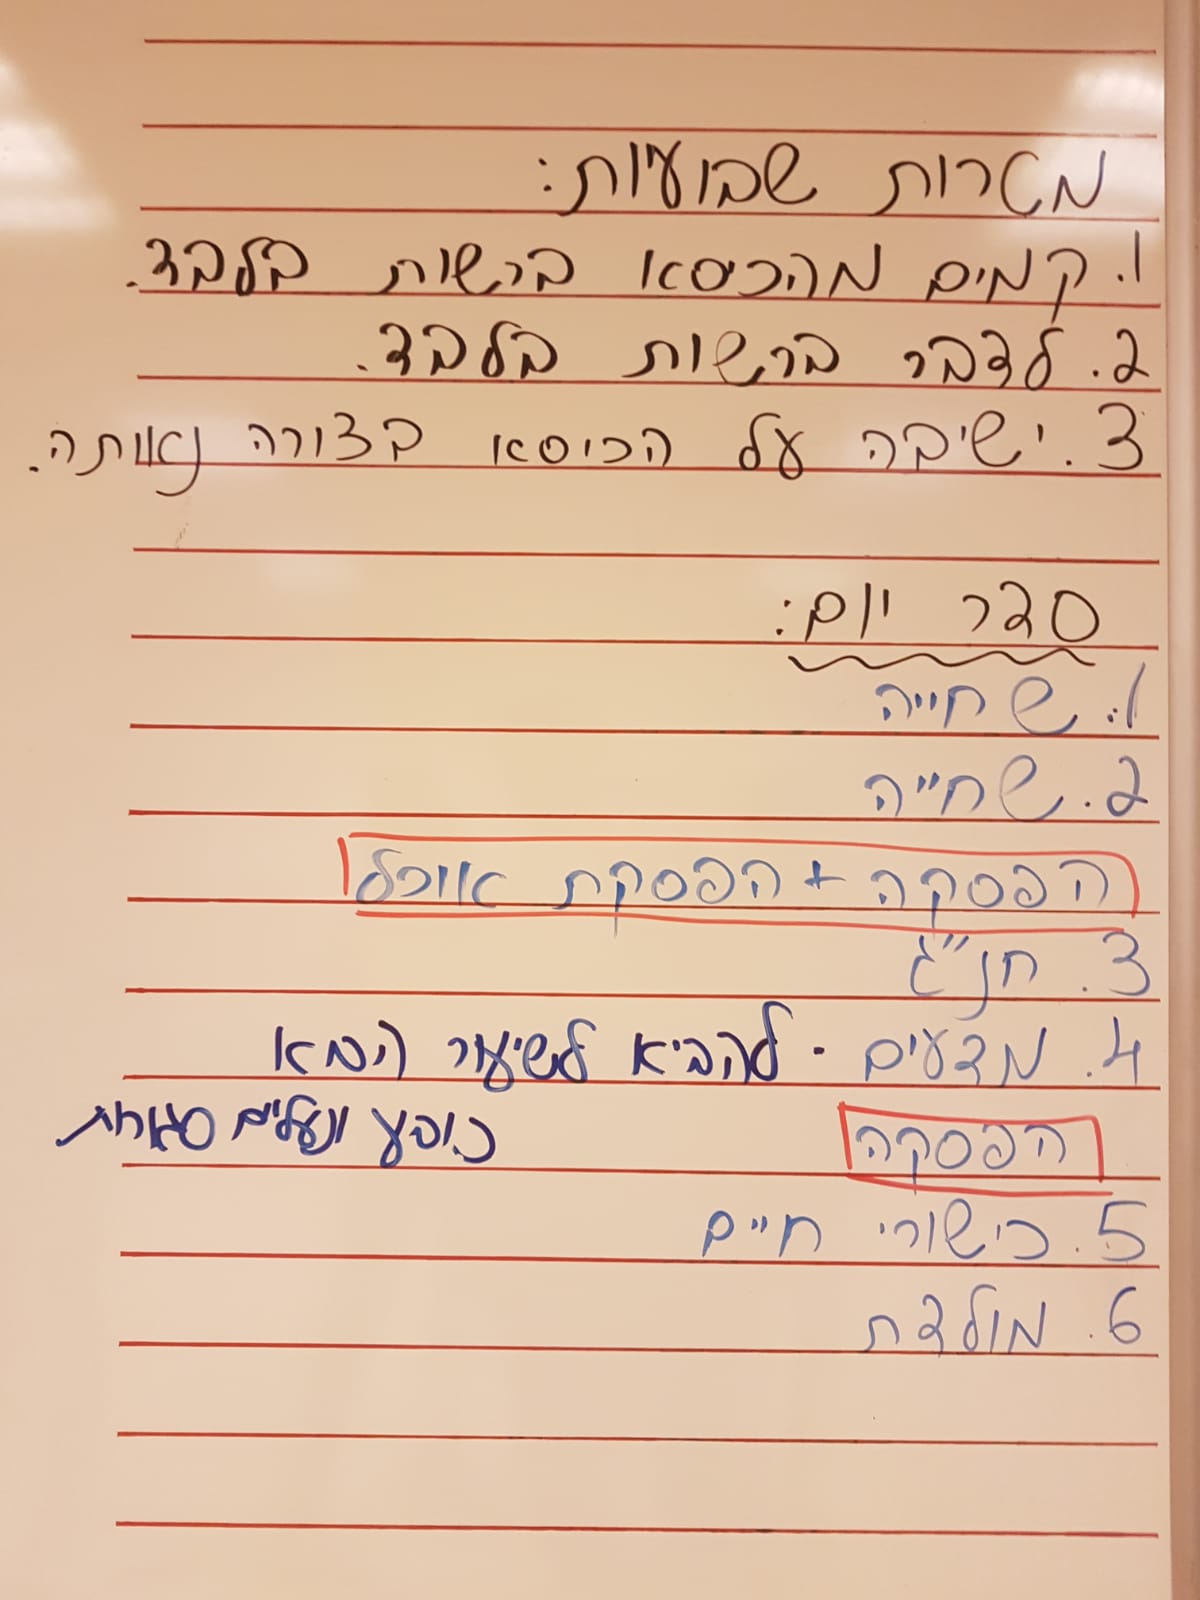 מטרות שבועיות:
1. קמים מהכיסא ברשות בלבד.
2. לדבר ברשות בלבד.
3. ישיבה על הכיסא בצורה נאותה.
סדר יום:
1. שחייה
2. שחייה
הפסקה + הפסקת אוכל
3. חנ"ג
4. מדעים - להביא לשיעור הבא
כובע ונעלים סגורות
הפסקה
5. כישורי חיים
6. מולדת